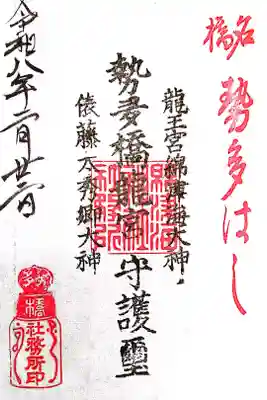 名橋
勢多はし
龍王宮綿津海大神
勢多橋龍宮守護璽
俵藤太秀郷大神
令和八年二月廿二日
勢多
橋
社務所印